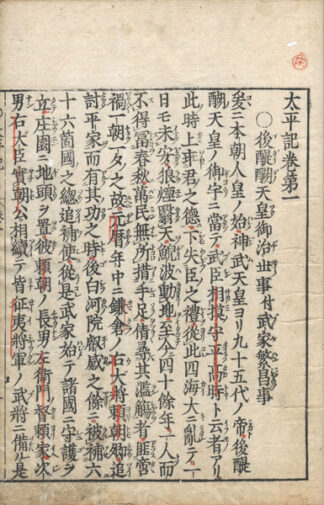 太平記卷第一
〇後醍醐天皇御治世事付武家繁昌事
爰ニ本朝人皇ノ始神武天皇ヨリ九十五代ノ帝後醍
醐天皇ノ御宇ニ當テ武臣相摸守平高時ト云者アリ
此時上乖君之德下失臣之禮從此四海大ニ亂テ一
日モ未安狼煙翳天鯢波動地至今四十餘年一人而
不得冨春秋萬民無所措手足倩尋其濫觴者匪啻
禍一朝一夕之故元曆年中ニ鎌倉ノ右大將賴朝卿追
討平家而有其功之時後白河院叡感之餘ニ被補六
十六箇國之總追補使從是武家始テ諸國ニ守護ヲ
立庄園ニ地頭ヲ置彼賴朝ノ長男左衛門督賴家次
男右大臣實朝公相續テ皆征夷將軍ノ武將ニ備ル是